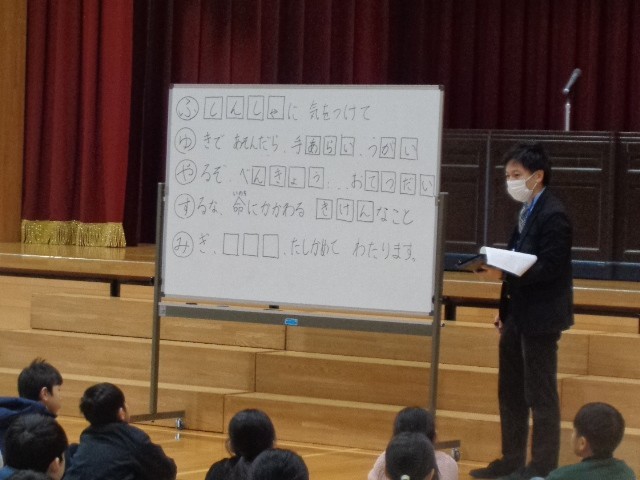 ふしんしゃに 気をつけて
ゆきで あそんだら、手あらい、うがい
やるぞ、べんきょう、、おてつだい
するな、命にかかわる きけんなこと
みぎ、□□□、たしかめて わたります。